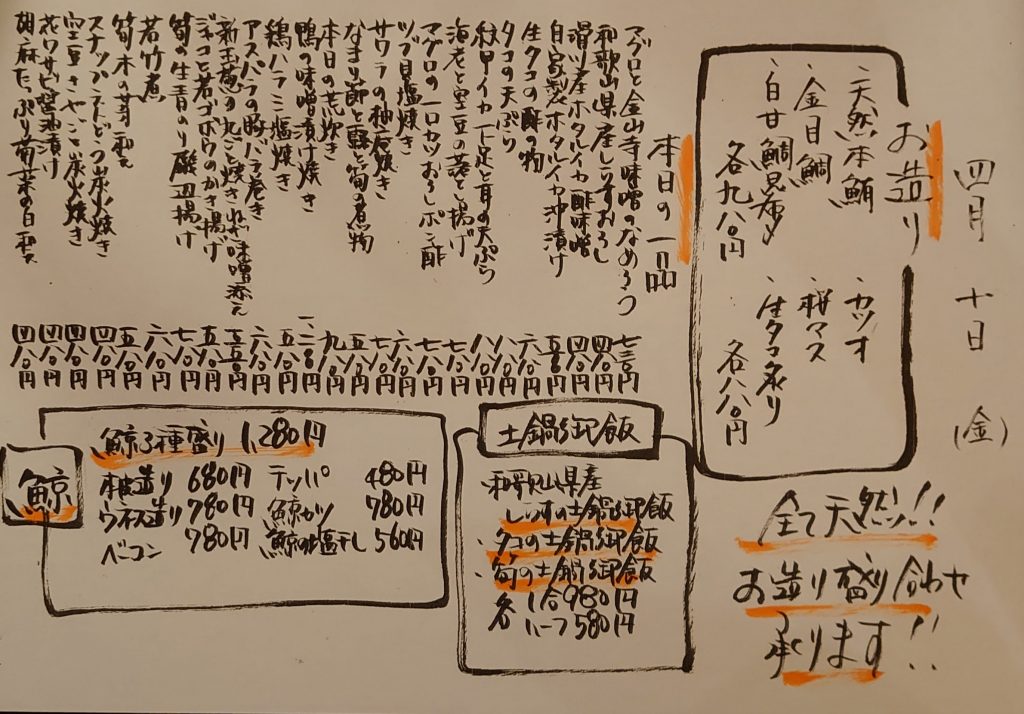 四月 十日 (金)
お造り
、天然本鮪
、金目鯛
、白甘鯛昆布〆
各九八〇円
、カツオ
、桜マス
、生タコ炙り
各八八〇円
全て天然!!
お造り盛り合わせ
承ります!!
本日の一品
マグロと金山寺味噌のなめろう 七三〇円
和歌山県産しらすおろし 四八〇円
滑川産ホタルイカ酢味噌 四八〇円
自家製ホタルイカ沖漬け 五八〇円
生タコの酢の物 六八〇円
タコの天ぷら 八八〇円
紋甲イカ下足と耳の天ぷら 八八〇円
海老と空豆の落とし揚げ 七八〇円
マグロの一口カツおろしポン酢 七八〇円
ツブ貝塩焼き 六八〇円
サワラの柚庵焼き 七八〇円
なまり節と蕗と筍の煮物 五八〇円
本日の荒炊き 九八〇円
鴨の味噌漬け焼き 一、二八〇円
鶏ハラミ塩焼き 五八〇円
アスパラの豚バラ巻き 六八〇円
新玉葱の丸ごと焼きねぎ味噌添え 五五〇円
ジャコと若ゴボウのかき揚げ 五八〇円
筍の生青のり磯辺揚げ 七八〇円
若竹煮 六八〇円
筍木の芽和え 五八〇円
スナップエンドウ炭火焼き 四八〇円
空豆さやごと炭火焼き 四八〇円
花ワサビ醤油漬け 四八〇円
胡麻たっぷり菊菜の白和え 四八〇円
土鍋御飯
、和歌山県産
しらすの土鍋御飯
、タコの土鍋御飯
、筍の土鍋御飯
各 1合980円
ハーフ580円
鯨
鯨3種盛り 1,280円
本皮造り 680円
ウネス造り 780円
ベーコン 780円
テッパ 480円
鯨カツ 780円
鯨の塩干し 560円